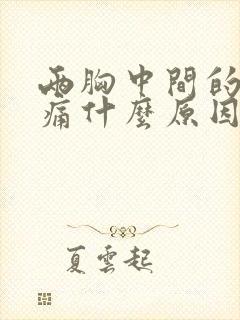 兩胸中間的
痛什麼原因
夏雲起